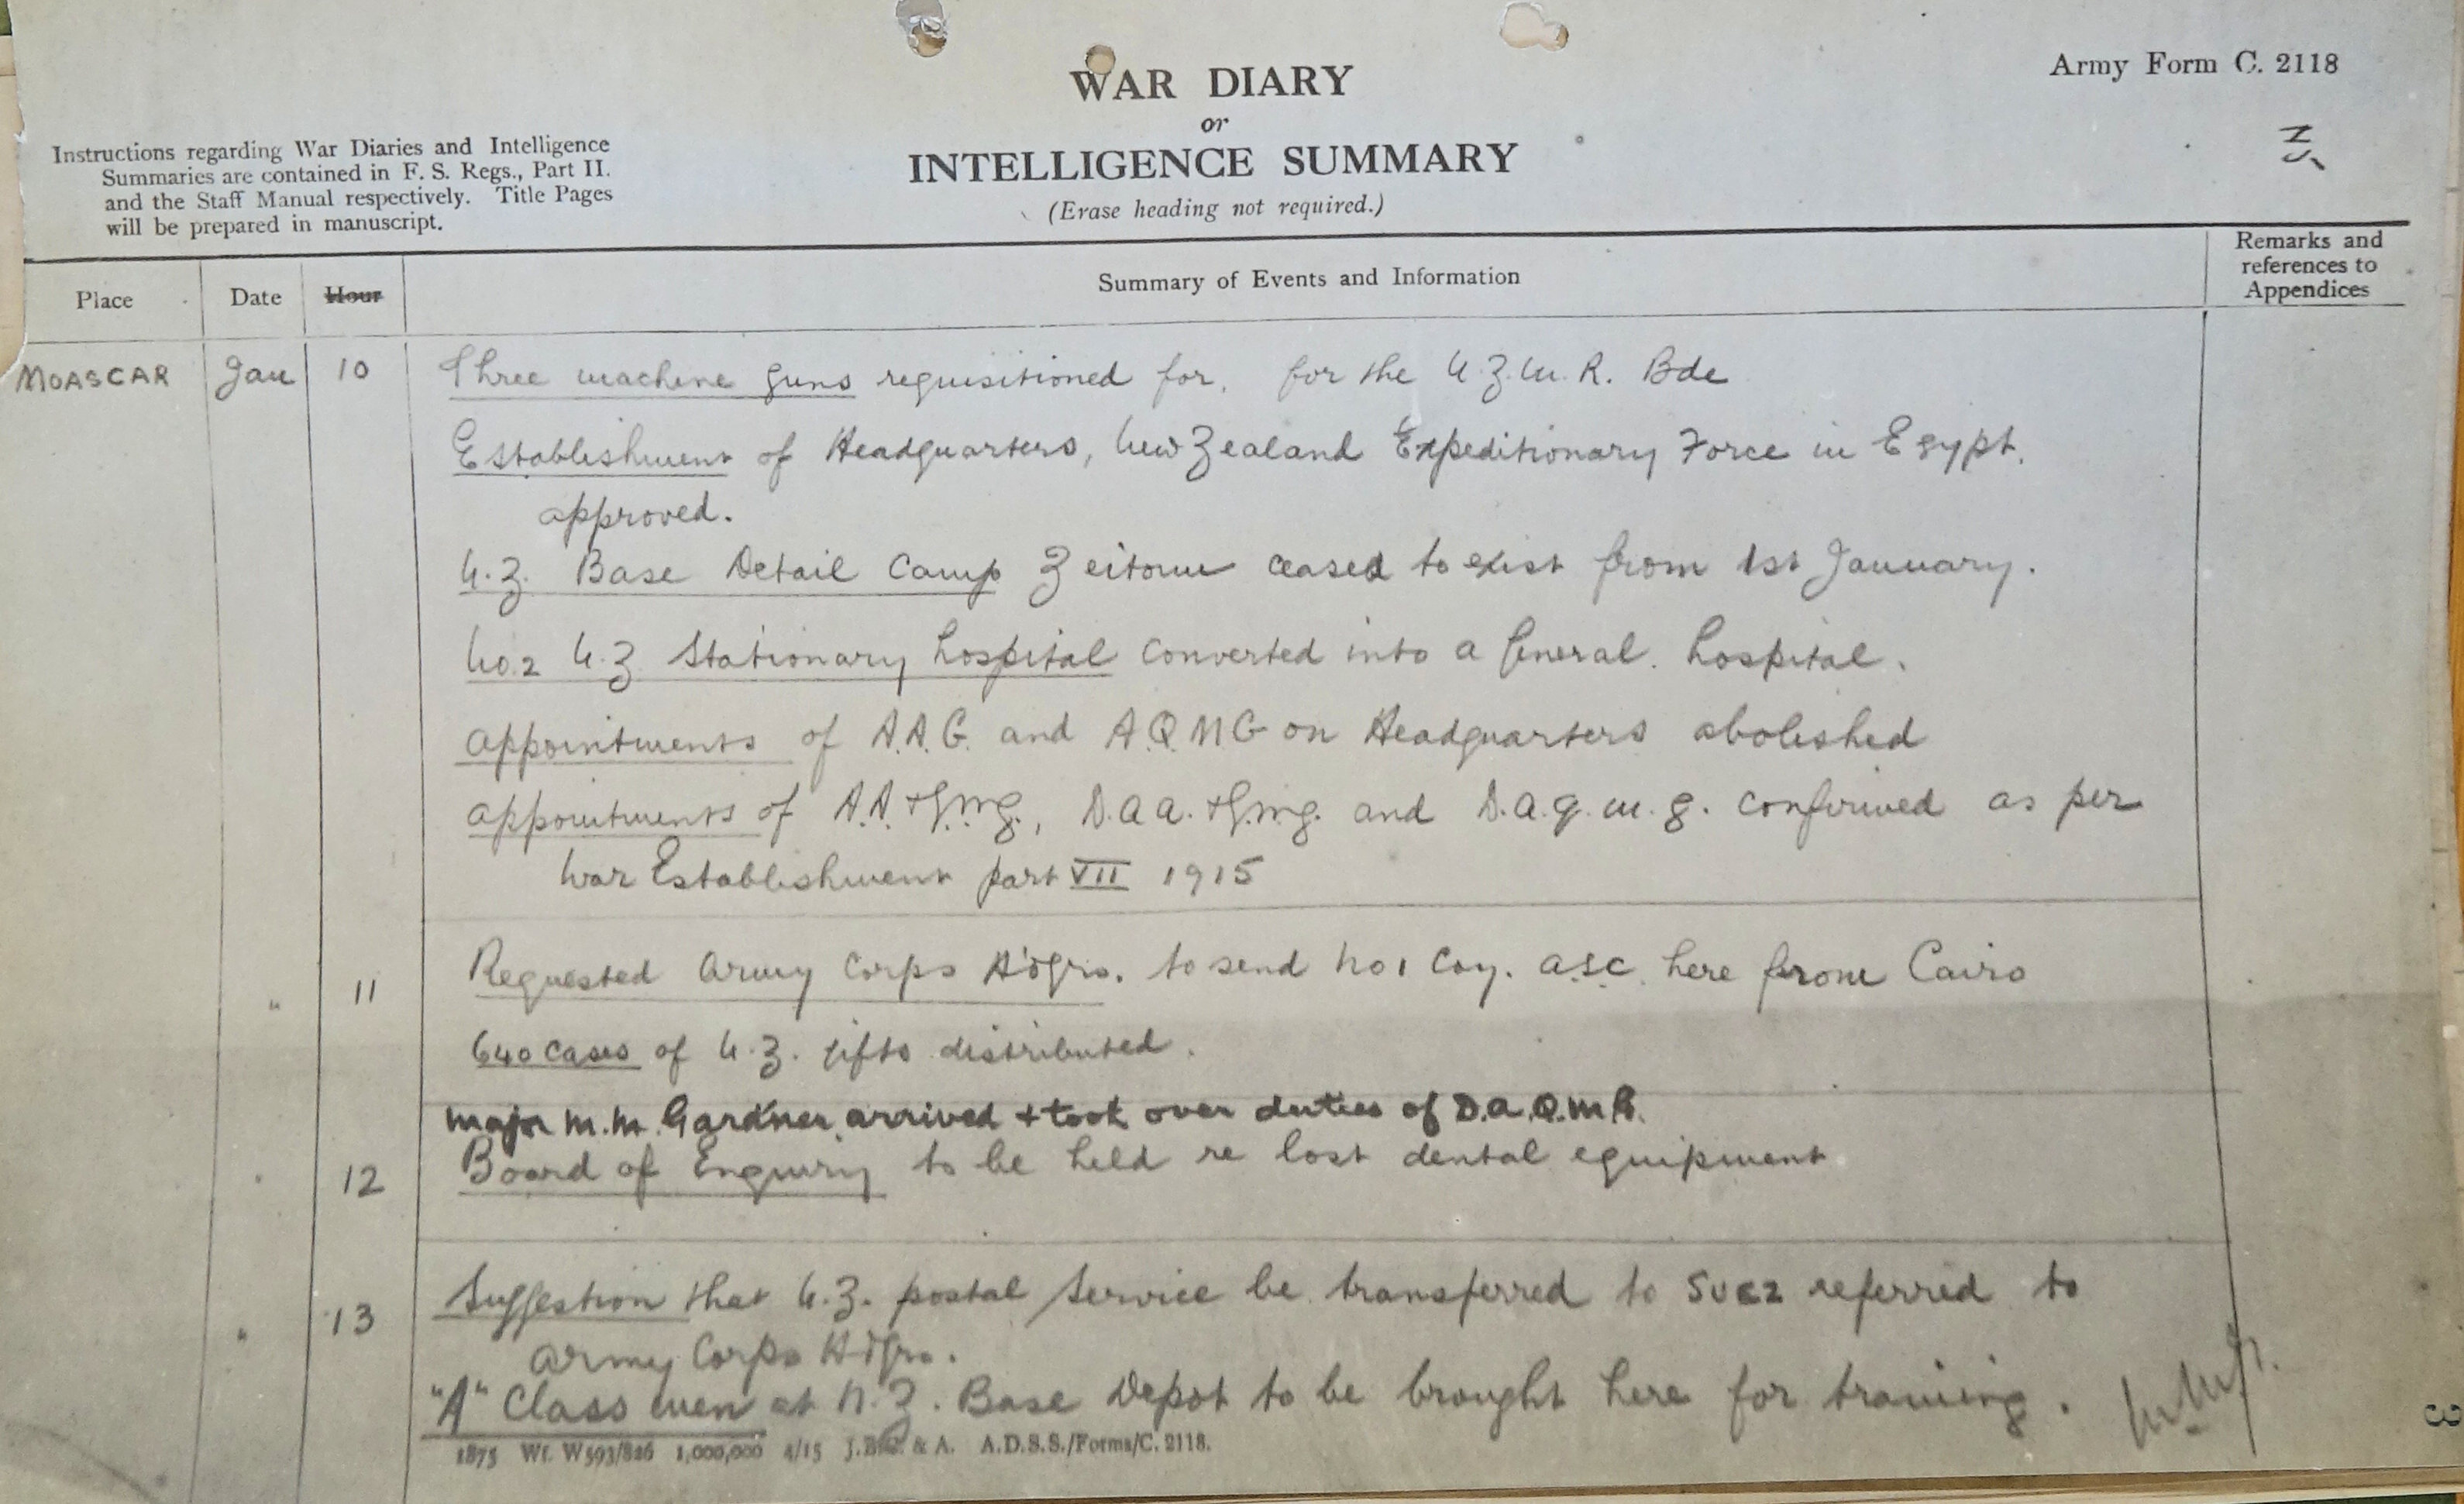 Army Form C. 2118
WAR DIARY
or
INTELLIGENCE SUMMARY
(Erase heading not required.)
Instructions regarding War Diaries and Intelligence
Summaries are contained in F. S. Regs., Part II.
and the Staff Manual respectively. Title Pages
will be prepared in manuscript.
Place Date Hour Summary of Events and Information Remarks and references to Appendices
MOASCAR Jan 10 Three machine guns requisitioned for, for the N.Z.M.R. Bde
Establishment of Headquarters, New Zealand Expeditionary Force in Egypt.
approved.
N.Z. Base Detail Camp Zeitoun ceased to exist from 1st January.
No.2 N.Z. Stationary hospital converted into a General. hospital.
appointments of A.A.G. and A.Q.M.G on Headquarters abolished
appointments of A.A.+Q.M.G., D.A.A.+Q.M.G. and D.A.Q.M.G. confirmed as per
War Establishment part VII 1915
" 11 Requested Army Corps Hdqrs. to send No 1 Coy. A.S.C. here from Cairo
640 cases of N.Z. gifts distributed.
Major M.M. Gardner arrived + took over duties of D.A.Q.M.G.
" 12 Board of Enquiry to be held re lost dental equipment
" 13 Suggestion that N.Z. postal service be transferred to SUEZ referred to
Army Corps Hdqrs.
"A" Class men at N.Z. Base Depot to be brought here for training.
1875 Wt. W593/826 1,000,000 4/15 J.B.C. & A. A.D.S.S./Forms/C. 2118.
3